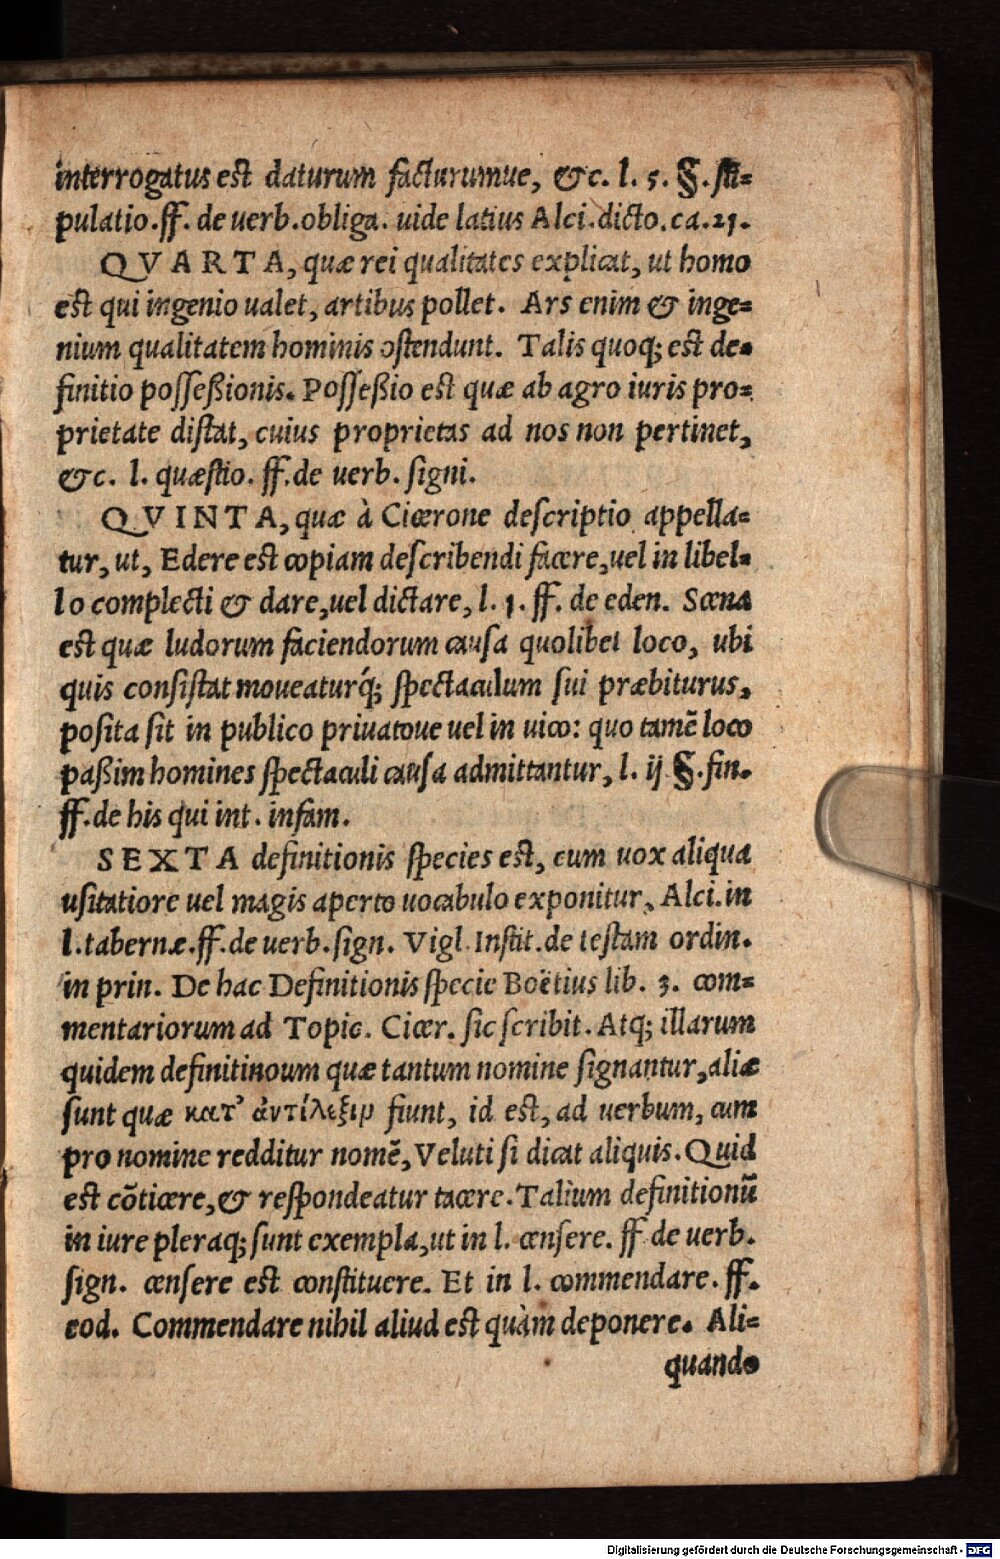 interrogatus est daturum facturumue, &c. l. 5. §. sti=
pulatio. ff. de uerb. obliga. uide latius Alci. dicto. ca. 21.
QVARTA, quæ rei qualitates explicat, ut homo
est qui ingenio ualet, artibus pollet. Ars enim & inge=
nium qualitatem hominis ostendunt. Talis quoq; est de=
finitio posseßionis. Posseßio est quæ ab agro iuris pro=
prietate distat, cuius proprietas ad nos non pertinet,
&c. l. quæstio. ff. de uerb. signi.
QVINTA, quæ à Cicerone descriptio appella=
tur, ut, Edere est copiam describendi facere, uel in libel=
lo complecti & dare, uel dictare, l. 1. ff. de eden. Scena
est quæ ludorum faciendorum causa quolibet loco, ubi
quis consistat moueaturq́; spectaculum sui præbiturus,
posita sit in publico priuatoue uel in uico: quo tamē loco
paßim homines spectaculi causa admittantur, l. ij §. fin.
ff. de his qui int. infam.
SEXTA definitionis species est, cum uox aliqua
usitatiore uel magis aperto uocabulo exponitur, Alci. in
l. tabernæ. ff. de uerb. sign. Vigl. Instit. de testam ordin.
in prin. De hac Definitionis specie Boëtius lib. 3. com=
mentariorum ad Topic. Cicer. sic scribit. Atq; illarum
quidem definitinoum quæ tantum nomine signantur, aliæ
sunt quæ κατ’ ἀντίλεξιρ fiunt, id est, ad uerbum, cum
pro nomine redditur nomē, Veluti si dicat aliquis. Quid
est cōticere, & respondeatur tacere. Talium definitionū
in iure pleraq; sunt exempla, ut in l. censere. ff de uerb.
sign. censere est constituere. Et in l. commendare. ff.
eod. Commendare nihil aliud est quàm deponere. Ali=
quando
Digitalisierung gefördert durch die Deutsche Forschungsgemeinschaft - DFG